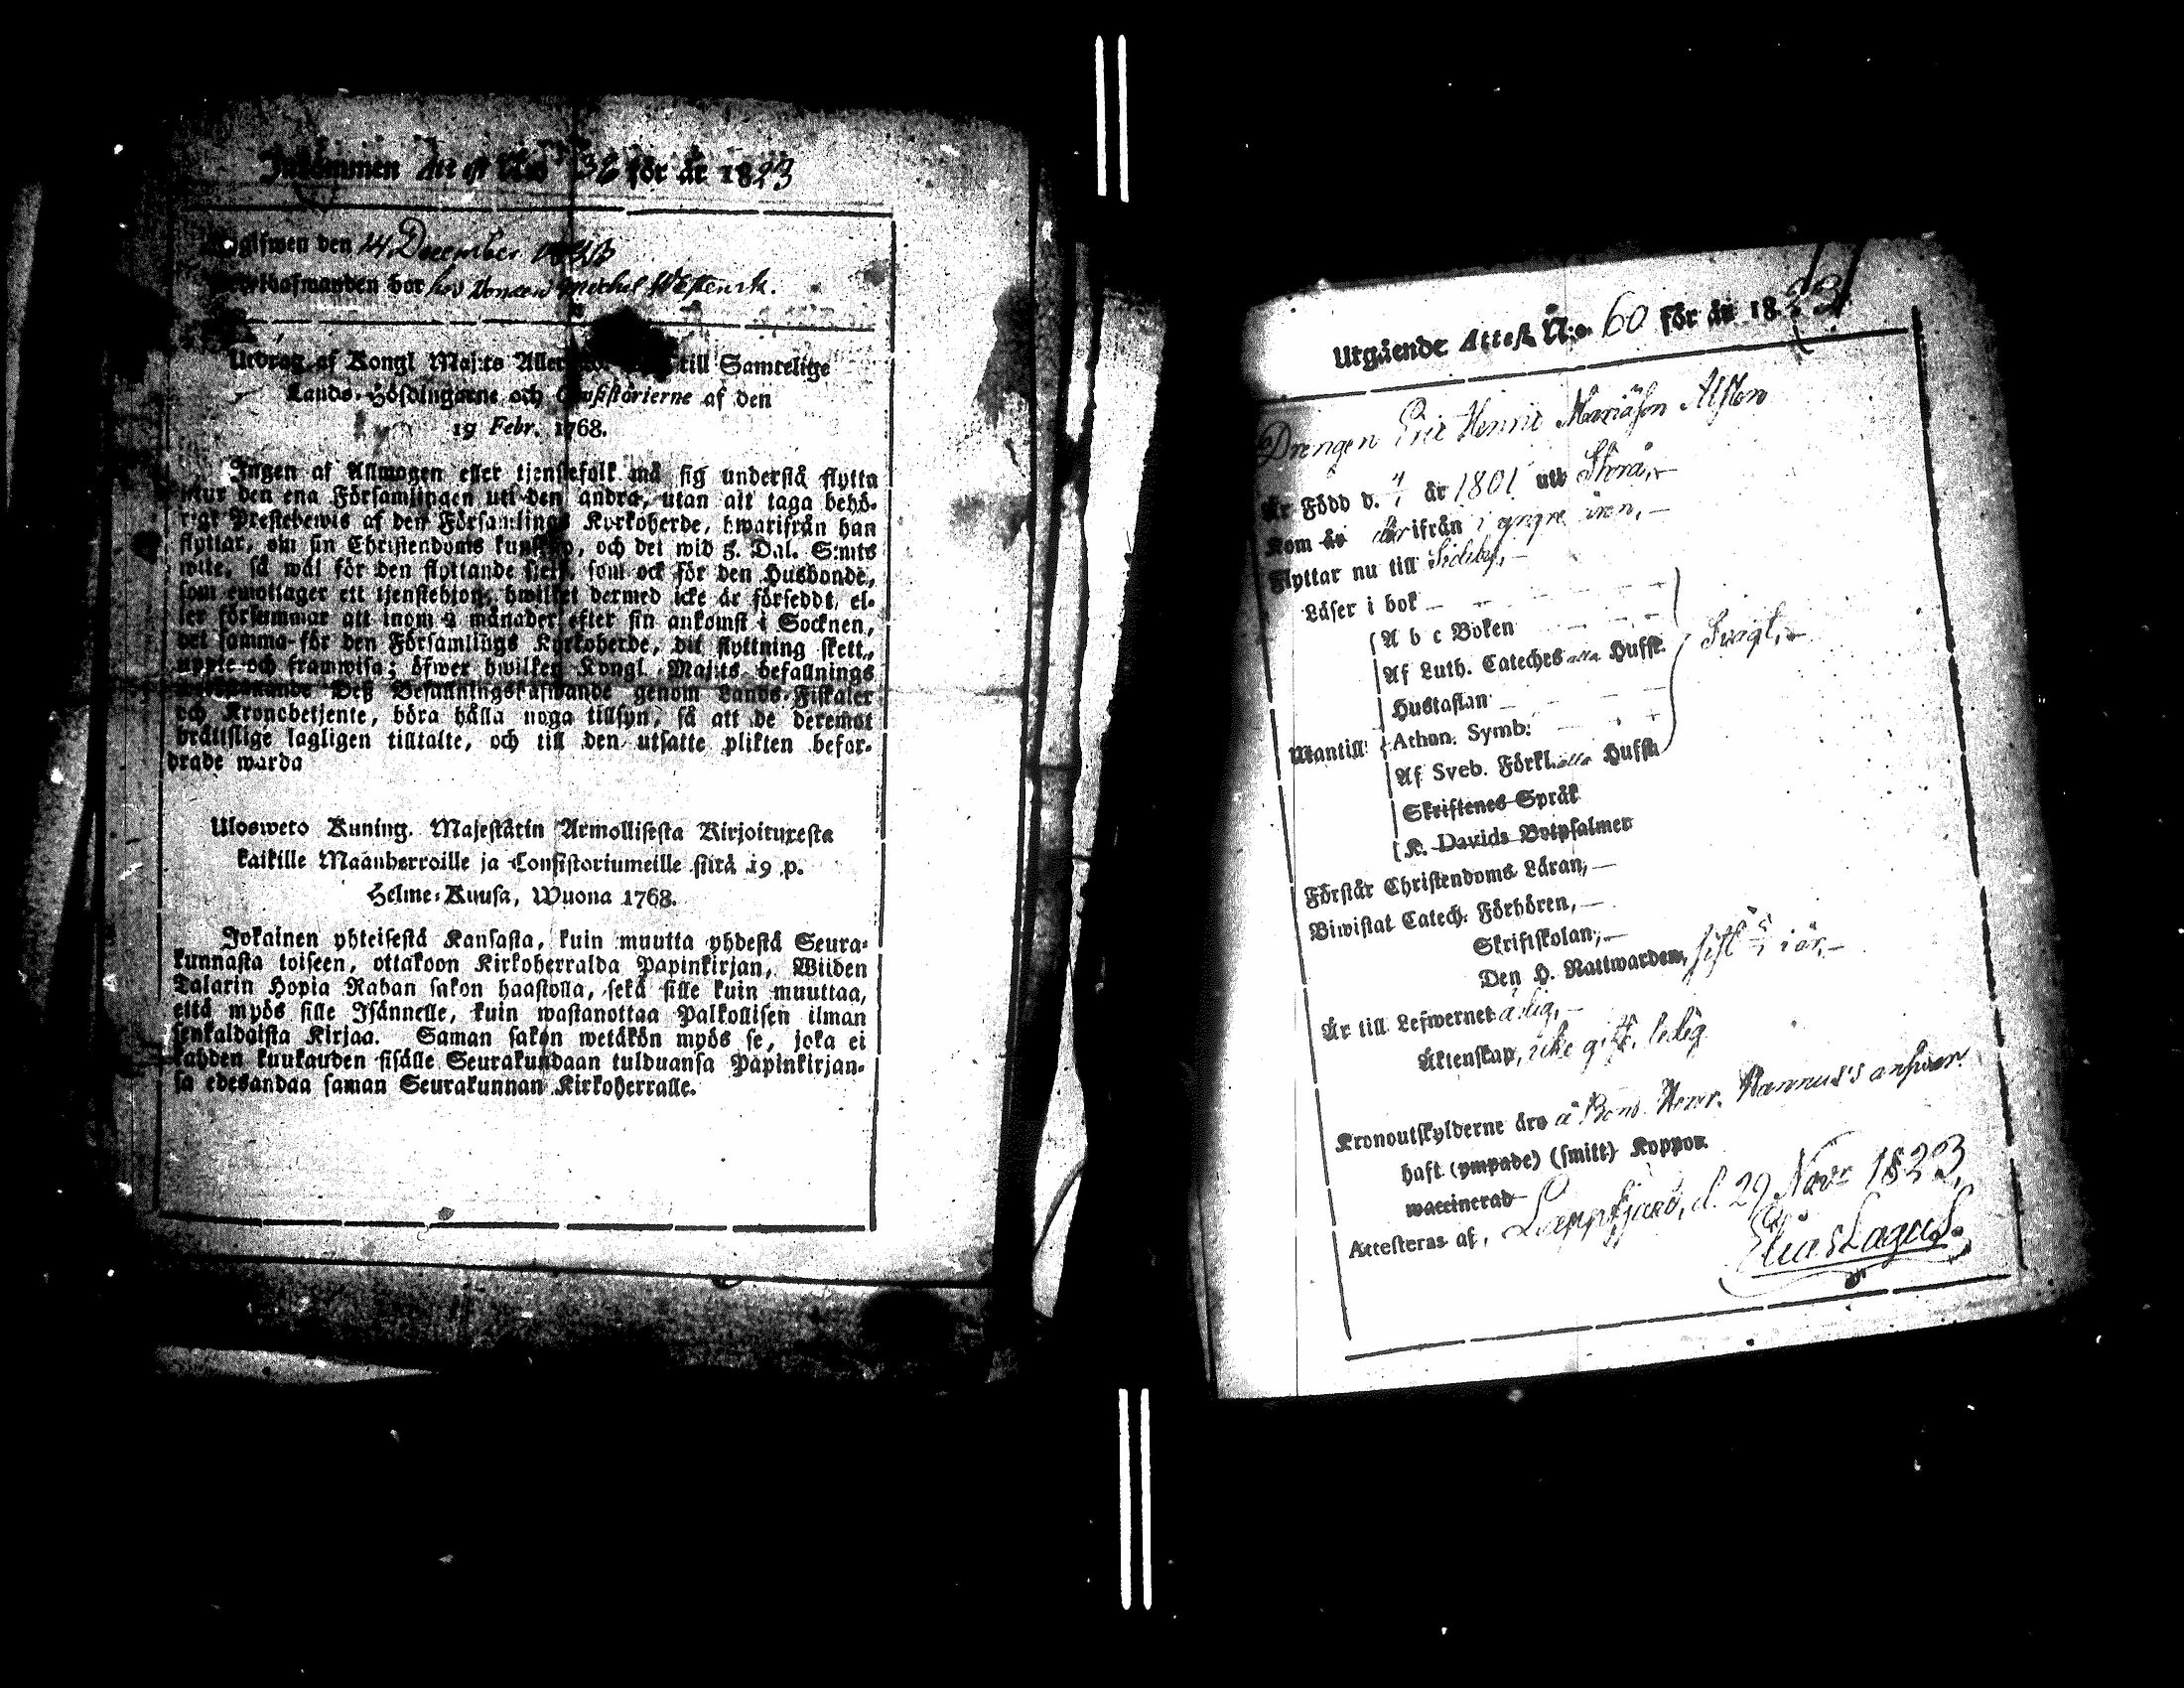 Inkommen Attest N:o 36 för år 1823
Uppgifwen den 24 December 1823
hos Bonden Michel Westervik.
Utdrag af Kongl Maj:ts till Samtelige
Lands-Höfdingarne och Consistorierne af den
19 Febr. 1768.
Ingen af Allmogen eller tjenstefolk må sig understå flytta
utur den ena Församlingen uti den andra, utan att taga behö-
rigt Prestebewis af den Församlings Kyrkoherde, hwarifrån han
flyttar, om sin Christendoms kunskap, och det wid 5. Dal. S:mts
wite, så wäl för den flyttande sielf, som ock för den Husbonde,
som emottager ett tjenstehjon, hwilket dermed icke är försedt, el-
ler försummar att inom 2 månader efter sin ankomst i Socknen,
det samma för den Församlings Kyrkoherde, dit flyttning skett,
uppte och framwisa; öfwer hwilken Kongl. Maj:ts befallnings
Deß Befallningshafwande genom Lands-Fiskaler
och Kronobetjente, böra hålla noga tillsyn, så att de deremot
brättslige lagligen tilltalte, och till den utsatte plikten befor-
drade warda
Ulosweto Kuning. Majestätin Armollisesta Kirjoituxesta
kaikille Maanherroille ja Consistoriumeille siitä 19 p.
Helme-Kuusa, Wuona 1768.
Jokainen yhteisestä Kansasta, kuin muutta yhdestä Seura-
kunnasta toiseen, ottakoon Kirkoherralda Papinkirjan, Wiiden
Talarin Hopia Rahan sakon haastolla, sekä sille kuin muuttaa,
että myös sille Isännelle, kuin wastanottaa Palkollisen ilman
senkaldaista Kirjaa. Saman sakon wetäkön myös se, joka ei
kahden kuukauden sisälle Seurakundaan tulduansa Papinkirjan-
sa edesandaa saman Seurakunnan Kirkoherralle.
Utgående Attest N:o 60 för år 1823
Drengen Eric Henric Mariäson Alsten
Är Född d. 4/4 år 1801 uti Storå,
Kom år därifrån i yngre åren,
Flyttar nu till Sideby,
Läser i bok
A b c Boken
Af Luth. Cateches alla Hufst. Svagt,
Hustaflan
Mantill: Athan. Symb:
Af Sveb. Förkl. alla Hufst.
Skriftenes Språk
K. Davids Botpsalmer
Förstår Christendoms Läran,
Biwistat Catech. Förhören,
Skriftskolan,
Den H. Nattwarden, sist i år,
Är till Lefwernet ärlig,
Äktenskap, icke gift, ledig
Kronoutskylderne äro å Bond. Henr. Rannus's answar
haft (ympade) (smitt) Koppor
waccinerad
Attesteras af, Lappfjärd, d. 29 Novr 1823,
Elias Lagus.